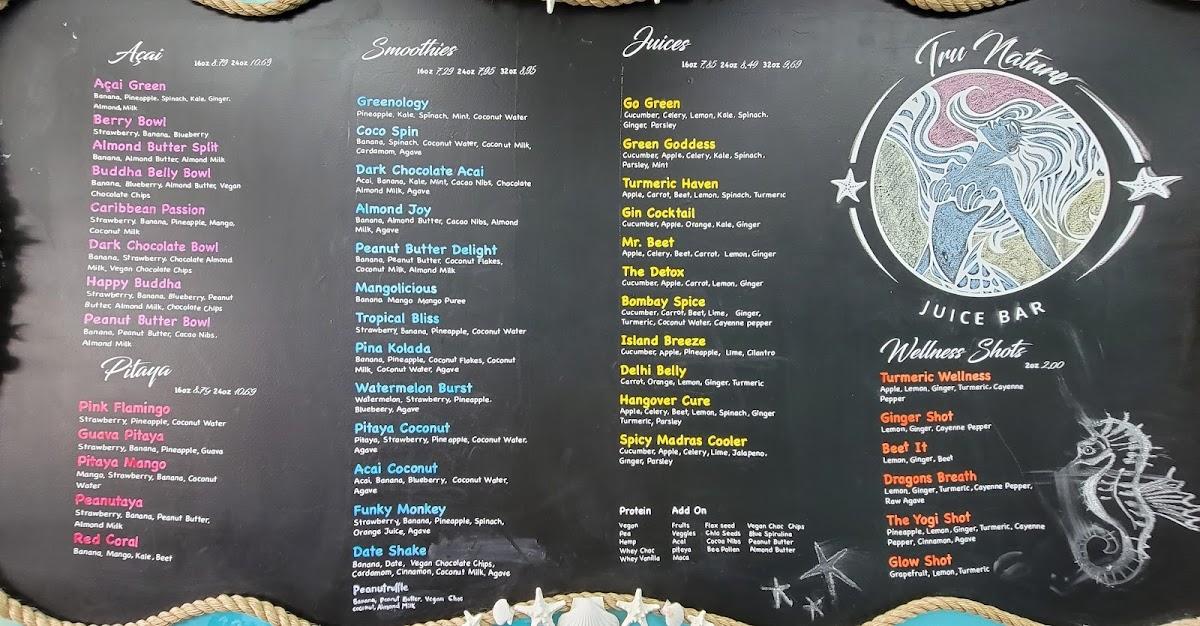 Açai
16oz 8.79 24oz 10.69
Açai Green
Banana, Pineapple, Spinach, Kale, Ginger,
Almond, Milk
Berry Bowl
Strawberry, Banana, Blueberry
Almond Butter Split
Banana, Almond Butter, Almond Milk
Buddha Belly Bowl
Banana, Blueberry, Almond Butter, Vegan
Chocolate Chips
Caribbean Passion
Strawberry, Banana, Pineapple, Mango,
Coconut Milk
Dark Chocolate Bowl
Banana, Strawberry, Chocolate Almond
Milk, Vegan Chocolate Chips
Happy Buddha
Strawberry, Banana, Blueberry, Peanut
Butter, Almond Milk, Chocolate Chips
Peanut Butter Bowl
Banana, Peanut Butter, Cacao Nibs,
Almond Milk
Pitaya
16oz 8.79 24oz 10.69
Pink Flamingo
Strawberry, Pineapple, Coconut Water
Guava Pitaya
Strawberry, Banana, Pineapple, Guava
Pitaya Mango
Mango, Strawberry, Banana, Coconut
Water
Peanutaya
Strawberry, Banana, Peanut Butter,
Almond Milk
Red Coral
Banana, Mango, Kale, Beet
Smoothies
16oz 7.29 24oz 7.95 32oz 8.95
Greenology
Pineapple, Kale, Spinach, Mint, Coconut Water
Coco Spin
Banana, Spinach, Coconut Water, Coconut Milk,
Cardamom, Agave
Dark Chocolate Acai
Acai, Banana, Kale, Mint, Cacao Nibs, Chocolate
Almond Milk, Agave
Almond Joy
Banana, Almond Butter, Cacao Nibs, Almond
Milk, Agave
Peanut Butter Delight
Banana, Peanut Butter, Coconut Flakes,
Coconut Milk, Almond Milk
Mangolicious
Banana Mango Mango Puree
Tropical Bliss
Strawberry, Banana, Pineapple, Coconut Water
Pina Kolada
Banana, Pineapple, Coconut Flakes, Coconut
Milk, Coconut Water, Agave
Watermelon Burst
Watermelon, Strawberry, Pineapple,
Bluebeery, Agave
Pitaya Coconut
Pitaya, Strawberry, Pineapple, Coconut Water,
Agave
Acai Coconut
Acai, Banana, Blueberry, Coconut Water,
Agave
Funky Monkey
Strawberry, Banana, Pineapple, Spinach,
Orange Juice, Agave
Date Shake
Banana, Date, Vegan Chocolate Chips,
Cardamom, Cinnamon, Coconut Milk, Agave
Peanutruffle
Banana, Peanut Butter, Vegan Choc
coconut, Almond Milk
Juices
16oz 7.85 24oz 8.49 32oz 9.69
Go Green
Cucumber, Celery, Lemon, Kale, Spinach,
Ginger, Parsley
Green Goddess
Cucumber, Apple, Celery, Kale, Spinach,
Parsley, Mint
Turmeric Haven
Apple, Carrot, Beet, Lemon, Spinach, Turmeric
Gin Cocktail
Cucumber, Apple, Orange, Kale, Ginger
Mr. Beet
Apple, Celery, Beet, Carrot, Lemon, Ginger
The Detox
Cucumber, Apple, Carrot, Lemon, Ginger
Bombay Spice
Cucumber, Carrot, Beet, Lime, Ginger,
Turmeric, Coconut Water, Cayenne pepper
Island Breeze
Cucumber, Apple, Pineapple, Lime, Cilantro
Delhi Belly
Carrot, Orange, Lemon, Ginger, Turmeric
Hangover Cure
Apple, Celery, Beet, Lemon, Spinach, Ginger
Turmeric, Parsley
Spicy Madras Cooler
Cucumber, Apple, Celery, Lime, Jalapeno,
Ginger, Parsley
Protein Add On
Vegan Fruits Flax seed Vegan Choc Chips
Pea Veggies Chia Seeds Blue Spirulina
Hemp Acai Cacao Nibs Peanut Butter
Whey Choc pitaya Bee Pollen Almond Butter
Whey Vanilla Maca
Tru Nature
JUICE BAR
Wellness Shots
2oz 2.00
Turmeric Wellness
Apple, Lemon, Ginger, Turmeric, Cayenne
Pepper
Ginger Shot
Lemon, Ginger, Cayenne Pepper
Beet It
Lemon, Ginger, Beet
Dragons Breath
Lemon, Ginger, Turmeric, Cayenne Pepper,
Raw Agave
The Yogi Shot
Pineapple, Lemon, Ginger, Turmeric, Cayenne
Pepper, Cinnamon, Agave
Glow Shot
Grapefruit, Lemon, Turmeric